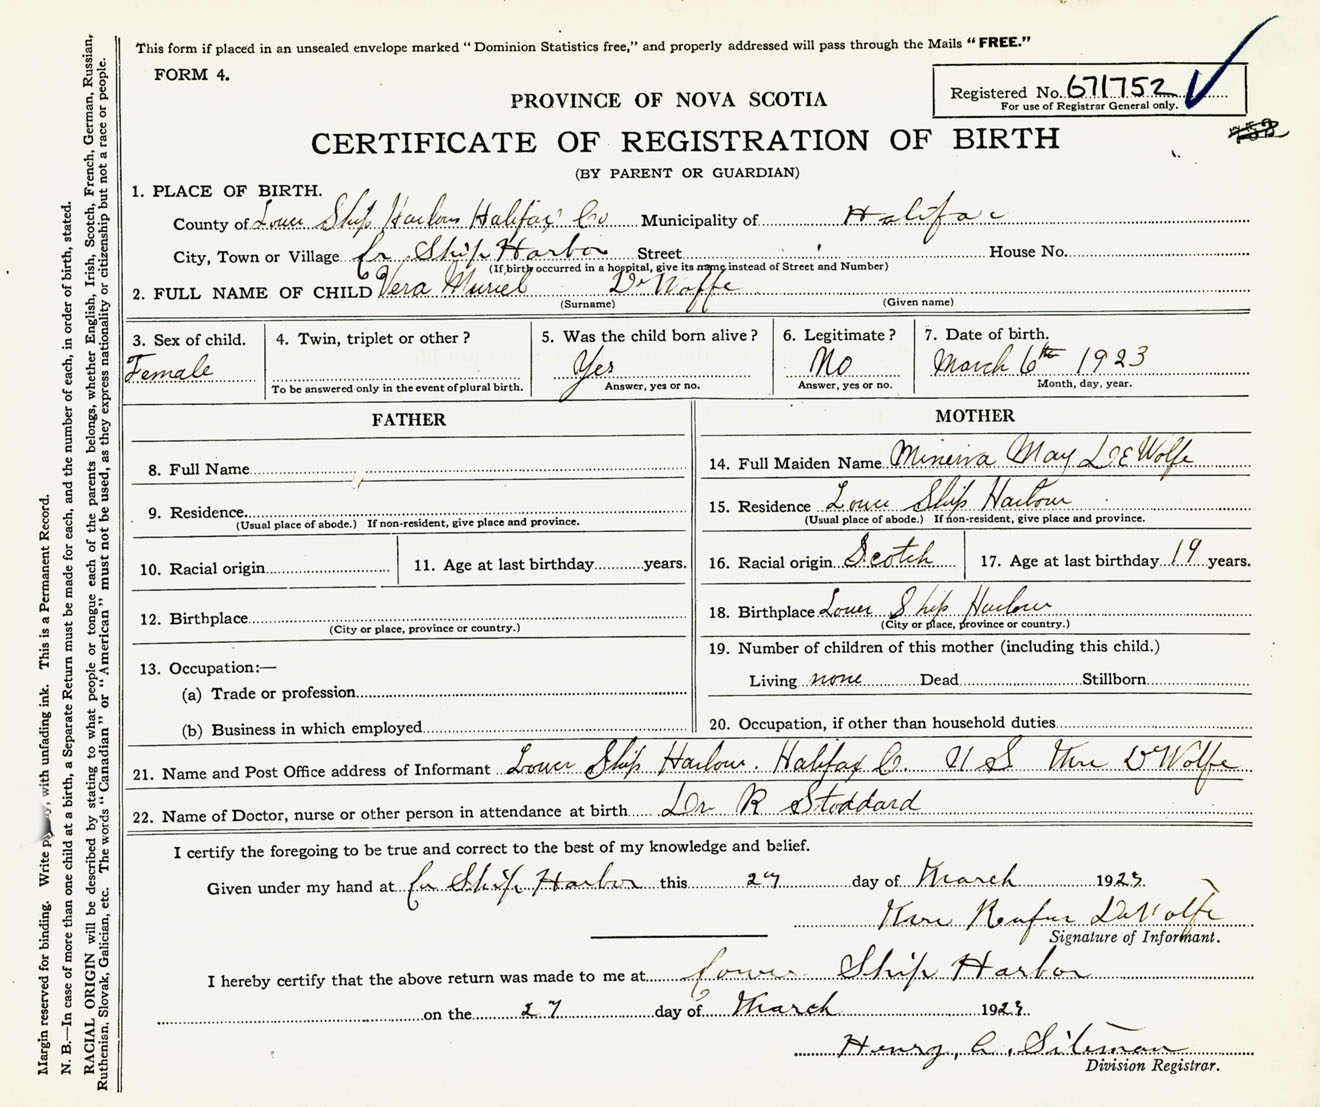 This form if placed in an unsealed envelope marked “Dominion Statistics free,” and properly addressed will pass through the Mails “FREE.”
FORM 4.
Registered No. 671752
For use of Registrar General only.
PROVINCE OF NOVA SCOTIA
CERTIFICATE OF REGISTRATION OF BIRTH
(BY PARENT OR GUARDIAN)
1. PLACE OF BIRTH.
County of Lower Ship Harbour Halifax Co Municipality of Halifax
City, Town or Village Lr Ship Harbor Street House No.
(If birth occurred in a hospital, give its name instead of Street and Number)
2. FULL NAME OF CHILD Vera Muriel DeWolfe
(Surname) (Given name)
3. Sex of child. 4. Twin, triplet or other? 5. Was the child born alive? 6. Legitimate? 7. Date of birth.
Female Yes No March 6th 1923
To be answered only in the event of plural birth. Answer, yes or no. Answer, yes or no. Month, day, year.
FATHER
8. Full Name
9. Residence.
(Usual place of abode.) If non-resident, give place and province.
10. Racial origin 11. Age at last birthday years.
12. Birthplace
(City or place, province or country.)
13. Occupation:—
(a) Trade or profession
(b) Business in which employed
MOTHER
14. Full Maiden Name Minerva May DeWolfe
15. Residence Lower Ship Harbour
(Usual place of abode.) If non-resident, give place and province.
16. Racial origin Scotch 17. Age at last birthday 19 years.
18. Birthplace Lower Ship Harbour
(City or place, province or country.)
19. Number of children of this mother (including this child.)
Living none Dead Stillborn
20. Occupation, if other than household duties
21. Name and Post Office address of Informant Lower Ship Harbour. Halifax Co. N S Mrs DeWolfe
22. Name of Doctor, nurse or other person in attendance at birth Dr R Stoddard
I certify the foregoing to be true and correct to the best of my knowledge and belief.
Given under my hand at Lr Ship Harbor this 27 day of March 1923.
Mrs Rufus DeWolfe
Signature of Informant.
I hereby certify that the above return was made to me at Lower Ship Harbor
on the 27 day of March 1923.
Henry A. Siteman
Division Registrar.
Margin reserved for binding. Write with unfading ink. This is a Permanent Record.
N. B.—In case of more than one child at a birth, a Separate Return must be made for each, and the number of each, in order of birth, stated.
RACIAL ORIGIN will be described by stating to what people or tongue each of the parents belongs, whether English, Irish, Scotch, French, German, Russian,
Ruthenian, Slovak, Galician, etc. The words “Canadian” or “American” must not be used, as they express nationality or citizenship but not a race or people.